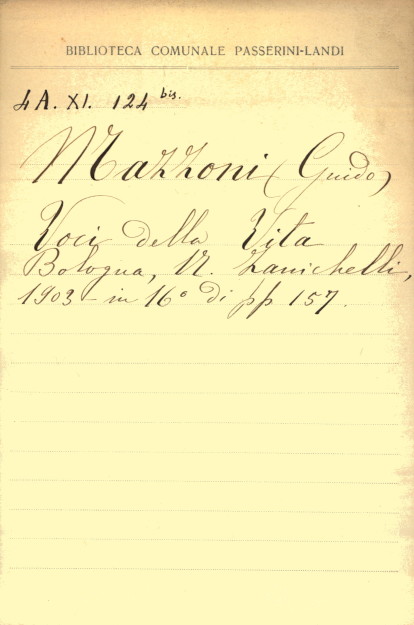 BIBLIOTECA COMUNALE PASSERINI-LANDI
4A. XI. 124 bis.
Mazzoni (Guido)
Voci della Vita
Bologna, N. Zanichelli,
1903 - in 16° di pp 157.